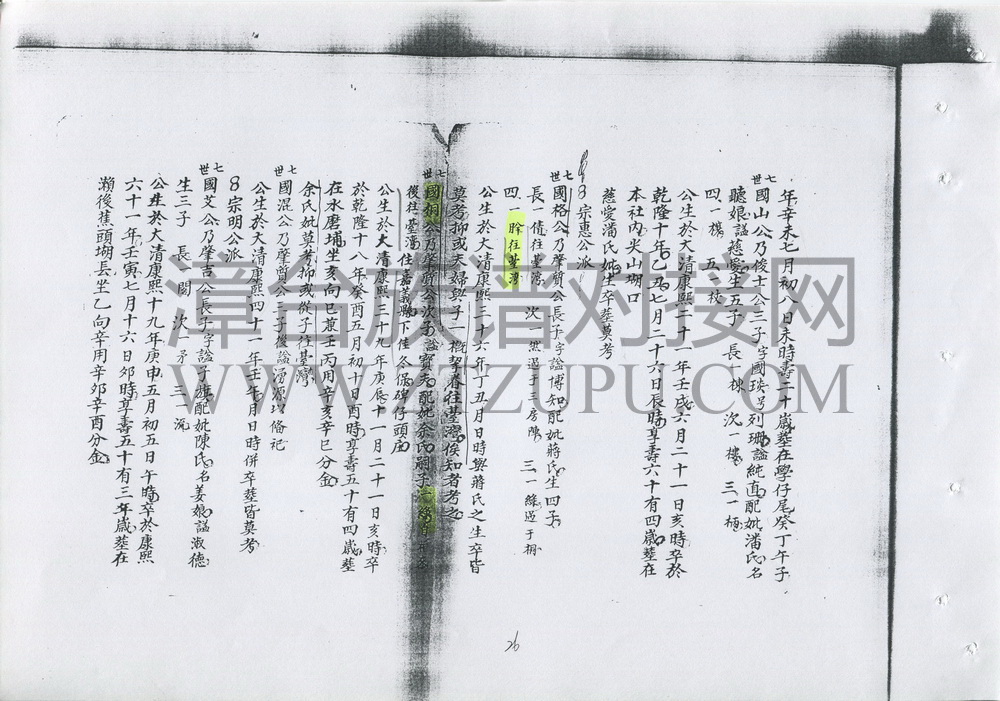 年辛未七月初八日未時壽二十歲塟在學仔尾癸丁午子
七世
國山公乃俊士公三子字國琰号列珊諡純直配妣潘氏名
聽娘諡慈愛生五子 長一棟 次一樓 三一栖
四一樸 五一枝
公生於大清康熙二十一年壬戌六月二十一日亥時卒於
乾隆十年乙丑七月二十六日辰時享壽六十有四歲塟在
本社内尖山埔口
慈愛潘氏妣生卒塟莫考
8宗惠公派
七世
國格公乃肇質公長子字諡博知配妣蔣氏生四子
長一倩往臺灣 次一然過于三房陳 三一緣過于桐
四一 往臺灣
公生於大清康熙三十六年丁丑月日時與蔣氏之生卒皆
莫考抑或夫婦與子一概挈眷往臺灣俟知者考之
七世
國桐公乃肇質公次子諡寶夫配妣余氏嗣子
後往臺灣住嘉義縣下佳冬腳碑仔頭庄
公生於大清康熙三十九年庚辰十一月二十一日亥時卒
於乾隆十八年癸酉五月初十日酉時享壽五十有四歲塟
在水磨埔坐亥向巳兼壬丙用辛亥辛巳分金
余氏妣莫考抑或從子往臺灣
七世
國混公乃肇質公三子後諡湧源 俻祀
公生於大清康熙四十一年壬午月日時併卒塟皆莫考
8宗明公派
七世
國芠公乃肇吉公長子字諡子旗配妣陳氏名姜娘諡淑德
生三子 長一闊 次一矛 三一沅
公生於大清康熙十九年庚申五月初五日午時卒於康熙
六十一年壬寅七月十六日夘時享壽五十有三年歲塟在
瀨後蕉頭堋長坐乙向辛用辛夘辛酉分金
26
漳台族谱对接网
WWW.ZTZUPU.COM